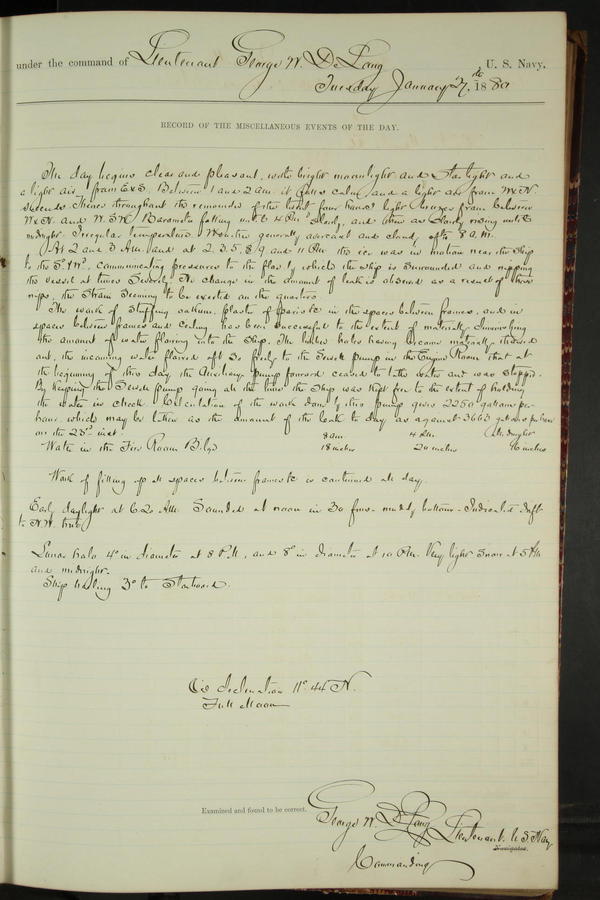 under the command of Lieutenant George W. De Long U. S. Navy,
Tuesday January 27th 1880
RECORD OF THE MISCELLANEOUS EVENTS OF THE DAY.
The day begins clear and pleasant, with bright moonlight and starlight and
a light air from ExS. Between 1 and 2 a.m. it falls calm, and a light air from WxN.
succeeds. Thence throughout the remainder of the twenty four hours light breezes from between
WxN. and W.S.W. Barometer falling until 4 P.M. slowly, and then as slowly rising until
midnight. Irregular temperature. Weather generally overcast and cloudy after 8 a.m.
At 2 and 3 A.M. and at 2. 3. 5. 8. 9 and 11 P.M. the ice was in motion near the ship
to the Sd. & Wd., communicating pressures to the floe by which the ship is surrounded and nipping
the vessel at times severely. No change in the amount of leak is observed as a result of these
nips, the strain seeming to be exerted on the quarters.
The work of stuffing oakum, plaster of paris &c in the spaces between frames, and in
spaces between frames and ceiling has been successful to the extent of materially diminishing
the amount of water flowing into the ship. The limber holes having become materially thawed
out, the incoming water flowed aft so freely to the Sewell Pump in the Engine Room that at
the beginning of this day, the Auxiliary pump forward ceased to take water and was stopped.
By keeping the Sewell Pump going all the time the ship was kept free to the extent of holding
the water in check. Calculation of the work done by this pump gives 2250 gallons per
hour, which may be taken as the amount of the leak to day as against 3663 gallons per hour
on the 25th inst.
8 am 4 P.M. Midnight
Water in the Fire Room Bilge 18 inches 24 inches 16 inches
Work of filling up all spaces between frames &c is continued all day.
Early daylight at 6.20 A.M. Sounded at noon in 30 fms - muddy bottom - Indicated drift
to N.W. true
Lunar halo 4° in diameter at 8 P.M., and 8° in diameter at 10 P.M. Very light snow at 5 P.M.
and midnight.
Ship heeling 3° to Starboard.
C's declination 11°. 44 N.
Full Moon
Examined and found to be correct.
George W. De Long Lieutenant. U. S. Navy
Navigator.
Commanding